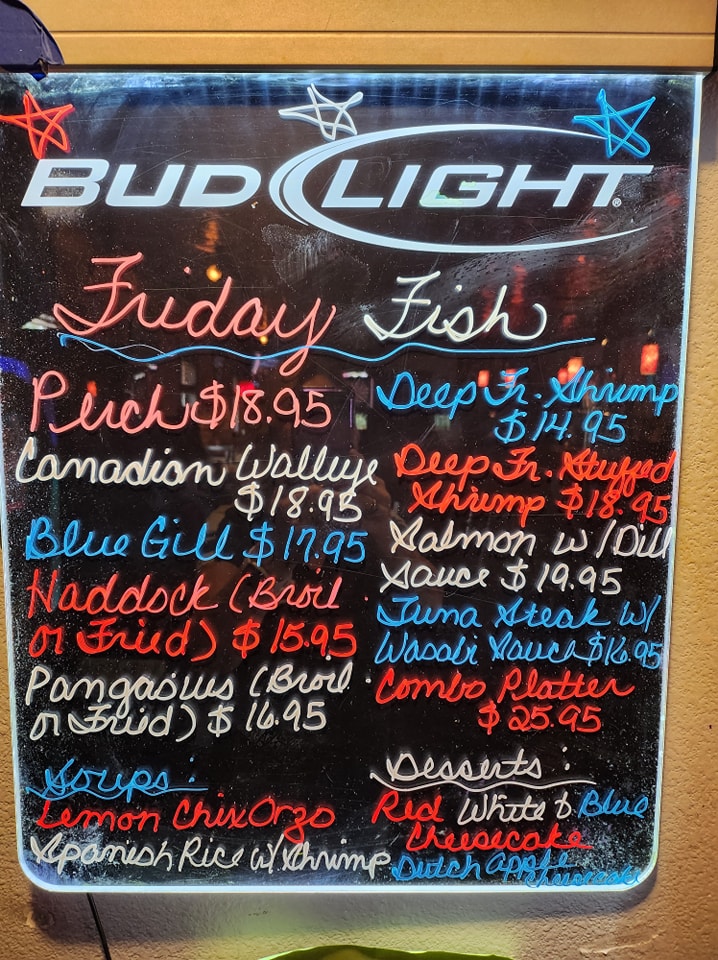 BUD LIGHT®
Friday Fish
Perch $18.95
Canadian Walleye
$18.95
Blue Gill $17.95
Haddock (Broil
or Fried) $15.95
Pangasius (Broil
or Fried) $16.95
Deep Fr. Shrimp
$14.95
Deep Fr. Stuffed
Shrimp $18.95
Salmon w/Dill
Sauce $19.95
Tuna Steak w/
Wasabi Sauce $16.95
Combo Platter
$25.95
Soups:
Lemon Chix Orzo
Spanish Rice w/Shrimp
Desserts:
Red White & Blue
Cheesecake
Dutch Apple
Cheesecake